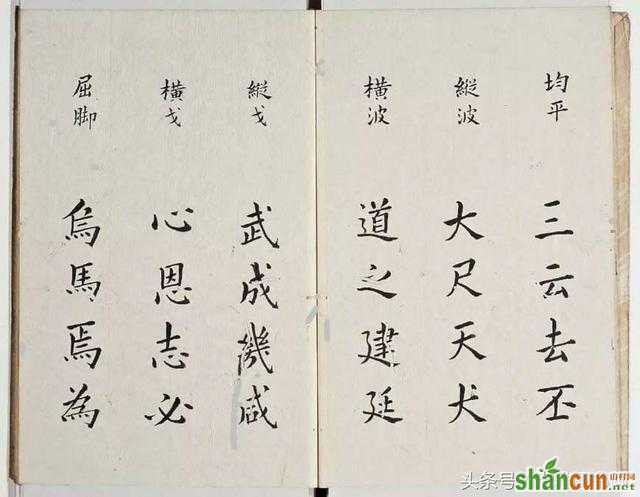 均平
三云去丕
縱波
大尺天犬
橫波
道之建延
縱戈
武成幾咸
橫戈
心恩志必
屈脚
烏馬焉為
头条号
shancun